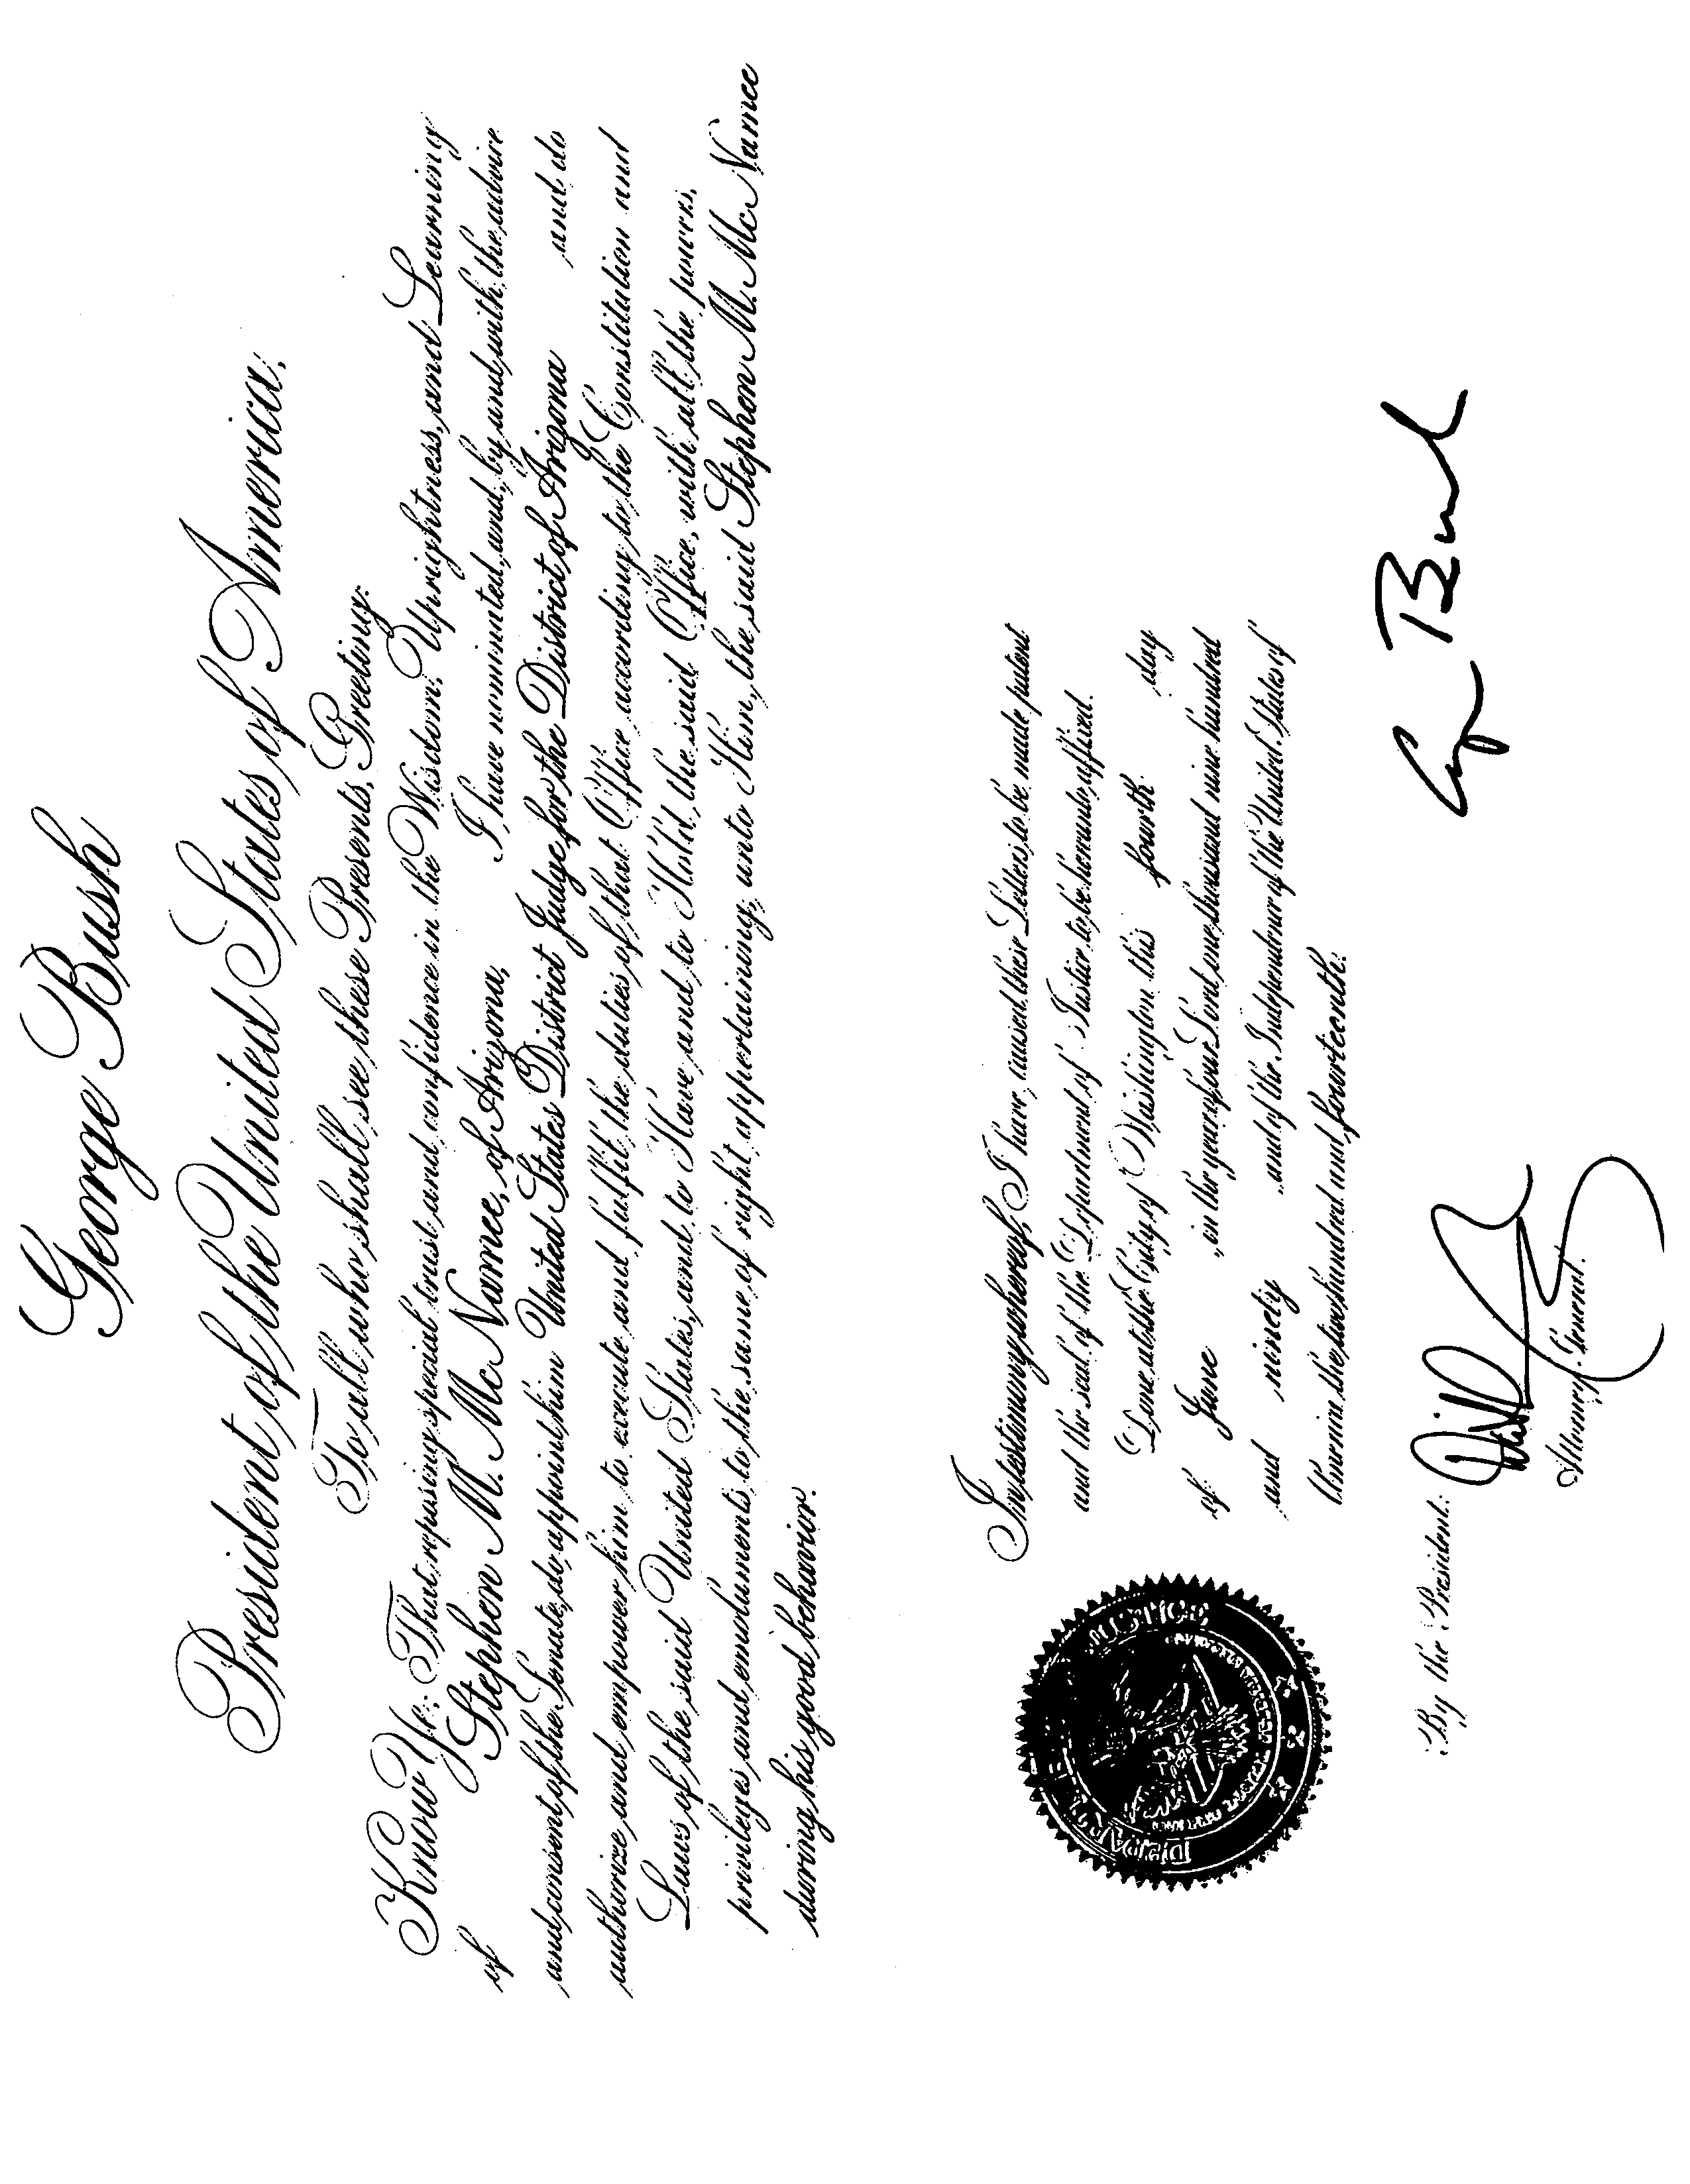 George Bush
President of the United States of America,
To all who shall see these Presents, Greeting:
Know Ye: That reposing special trust and confidence in the Wisdom, Uprightness, and Learning
of Stephen M. McNamee, of Arizona, I have nominated, and, by and with the advice
and consent of the Senate, do appoint him United States District Judge for the District of Arizona and do
authorize and empower him to execute and fulfil the duties of that Office according to the Constitution and
Laws of the said United States, and to Have and to Hold the said Office, with all the powers,
privileges and emoluments to the same of right appertaining, unto Him, the said Stephen M. McNamee
during his good behavior.
In testimony whereof, I have caused these Letters to be made patent
and the seal of the Department of Justice to be hereunto affixed.
Done at the City of Washington this fourth day
of June in the year of our Lord one thousand nine hundred
and ninety and of the Independence of the United States of
America the two hundred and fourteenth.
JUSTICE
By the President:
Attorney General.